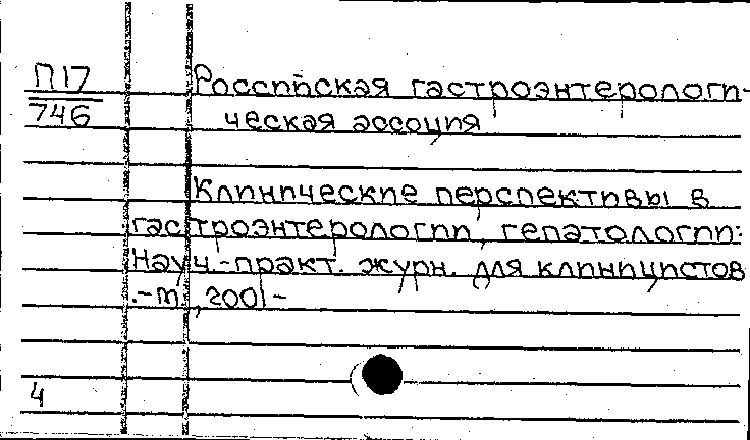 П17
746
Российская гастроэнтерологи-
ческая ассоция
Клинические перспективы в
гастроэнтерологии, гепатологии:
Науч.-практ. журн. для клиницистов
.-М.,2001-
4